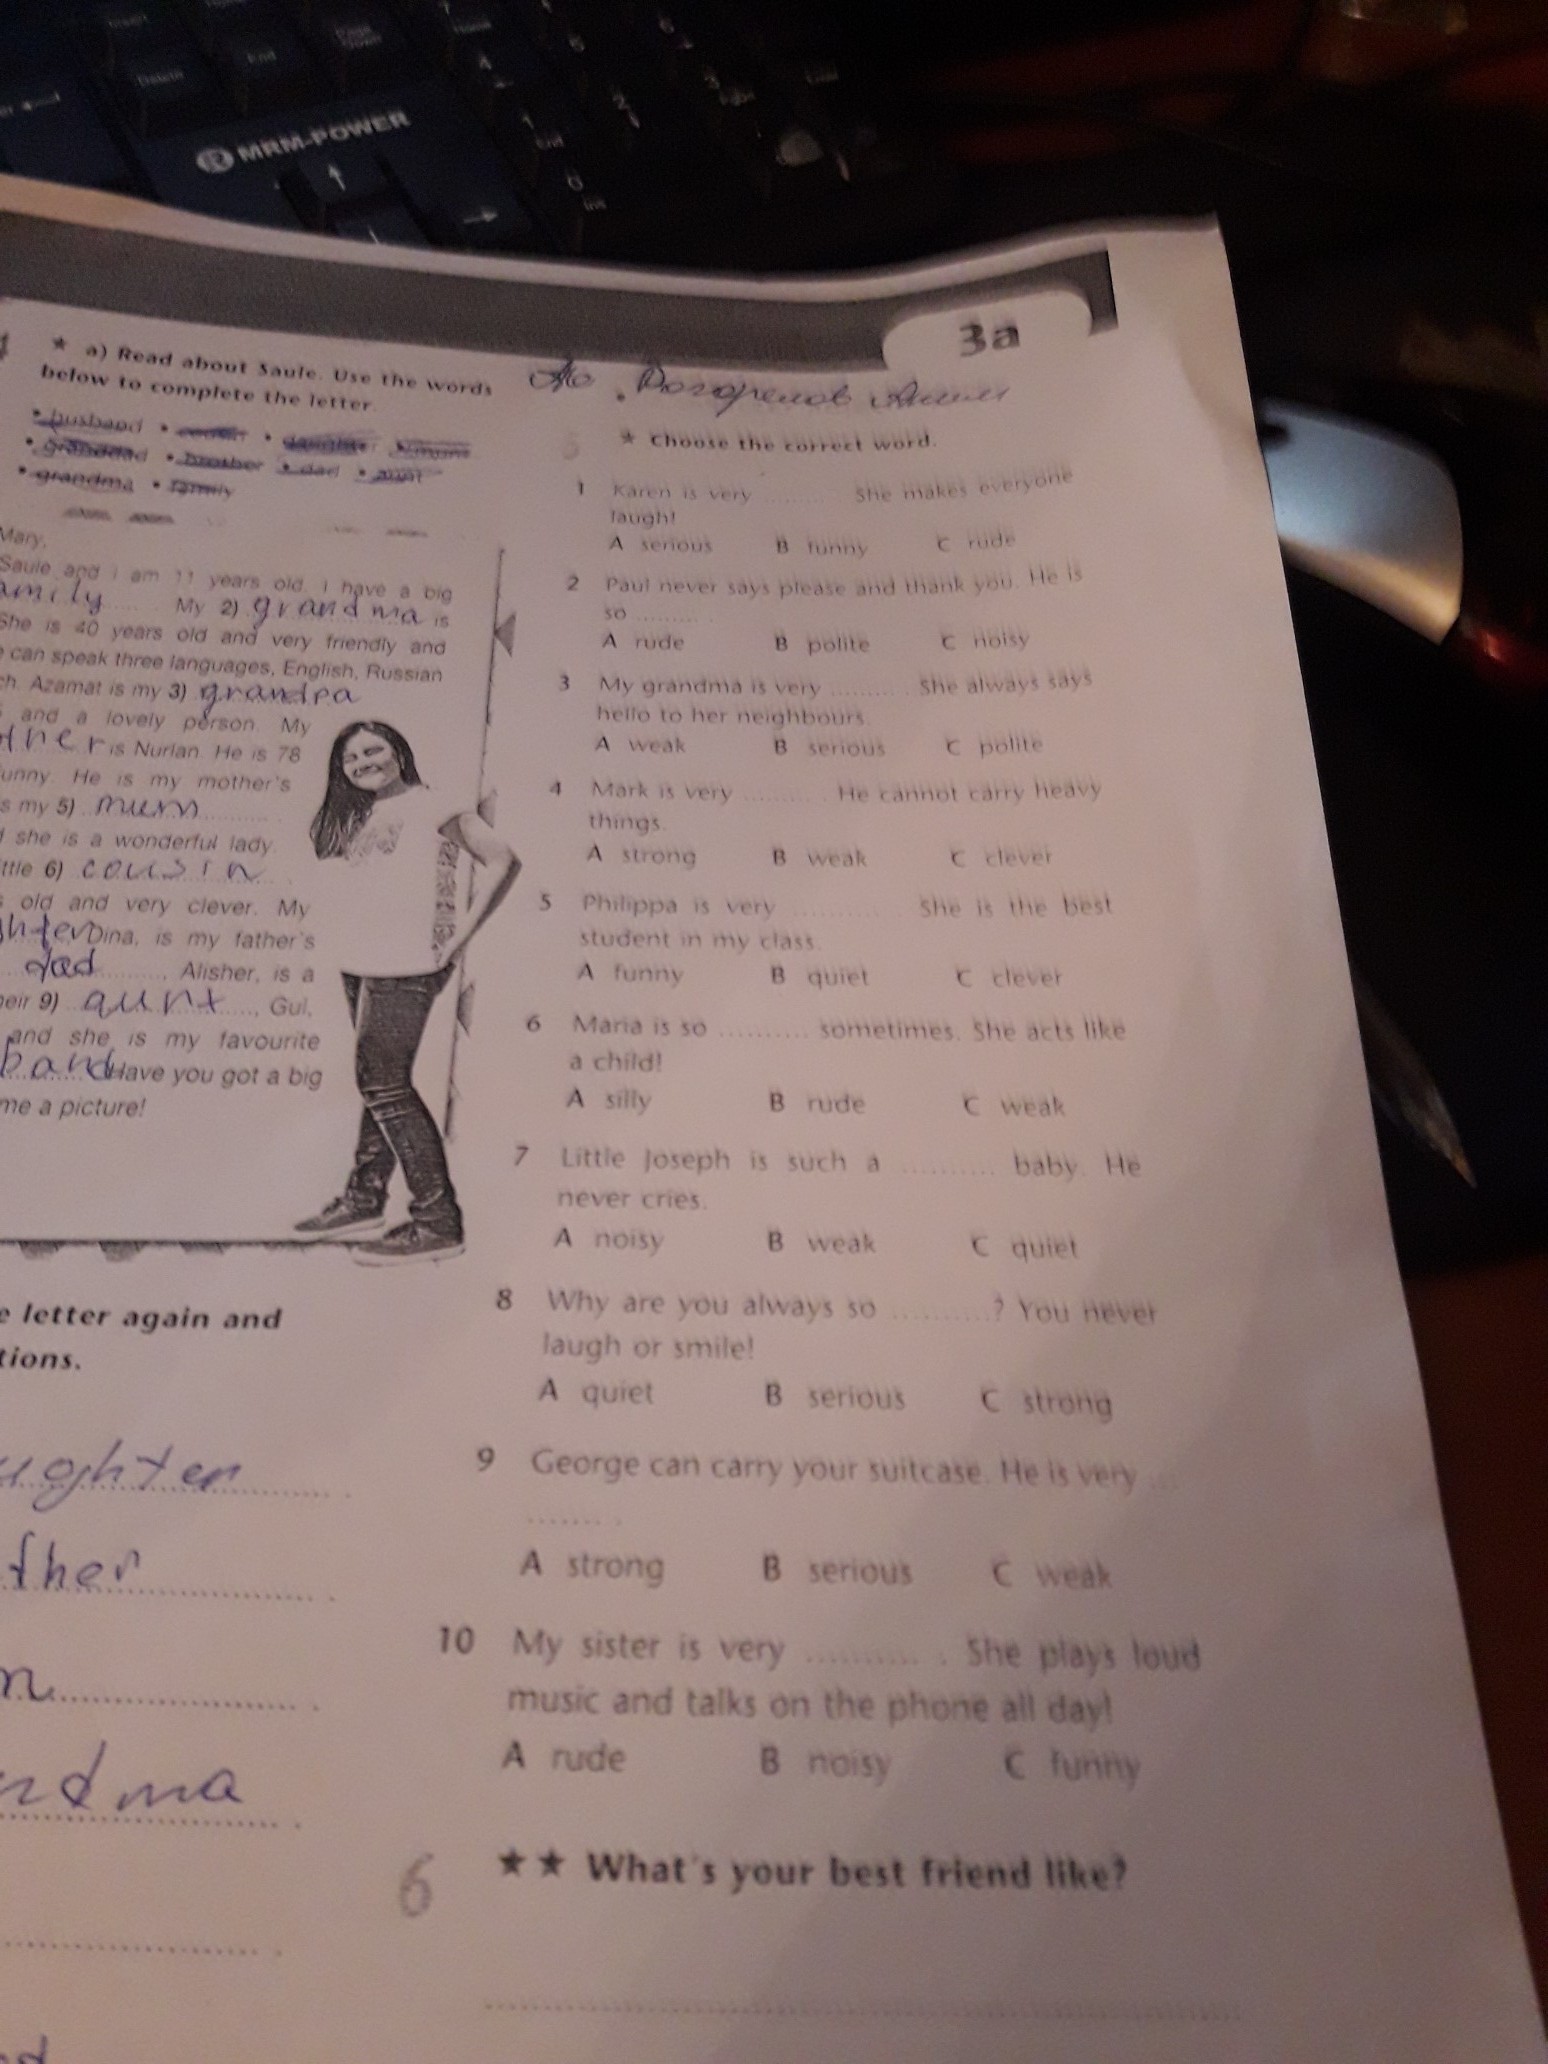 Delete
End
4
5
6
1
End
2
3
0
Ins
® MRM-POWER
3a
★ a) Read about Saule. Use the words
below to complete the letter.
• husband • cousin • daughter
• granddad • brother • dad • aunt
• grandma • family
Mary,
Saule and I am 11 years old. I have a big
amily My 2) grandma is
She is 40 years old and very friendly and
can speak three languages, English, Russian
ch. Azamat is my 3) grandpa
and a lovely person. My
ther is Nurlan. He is 78
unny. He is my mother's
s my 5) mum
she is a wonderful lady.
ttle 6) cousin
old and very clever. My
ghter Dina, is my father's
dad, Alisher, is a
heir 9) aunt, Gul,
and she is my favourite
band Have you got a big
me a picture!
e letter again and
tions.
ughter
ther
m
ndma
★ Choose the correct word.
1 Karen is very .......... She makes everyone
laugh!
A serious B funny C rude
2 Paul never says please and thank you. He is
so .......... .
A rude B polite C noisy
3 My grandma is very .......... . She always says
hello to her neighbours.
A weak B serious C polite
4 Mark is very .......... . He cannot carry heavy
things.
A strong B weak C clever
5 Philippa is very .......... She is the best
student in my class.
A funny B quiet C clever
6 Maria is so .......... sometimes. She acts like
a child!
A silly B rude C weak
7 Little Joseph is such a .......... baby. He
never cries.
A noisy B weak C quiet
8 Why are you always so ..........? You never
laugh or smile!
A quiet B serious C strong
9 George can carry your suitcase. He is very ...
....... .
A strong B serious C weak
10 My sister is very .......... . She plays loud
music and talks on the phone all day!
A rude B noisy C funny
6 ★★ What's your best friend like?